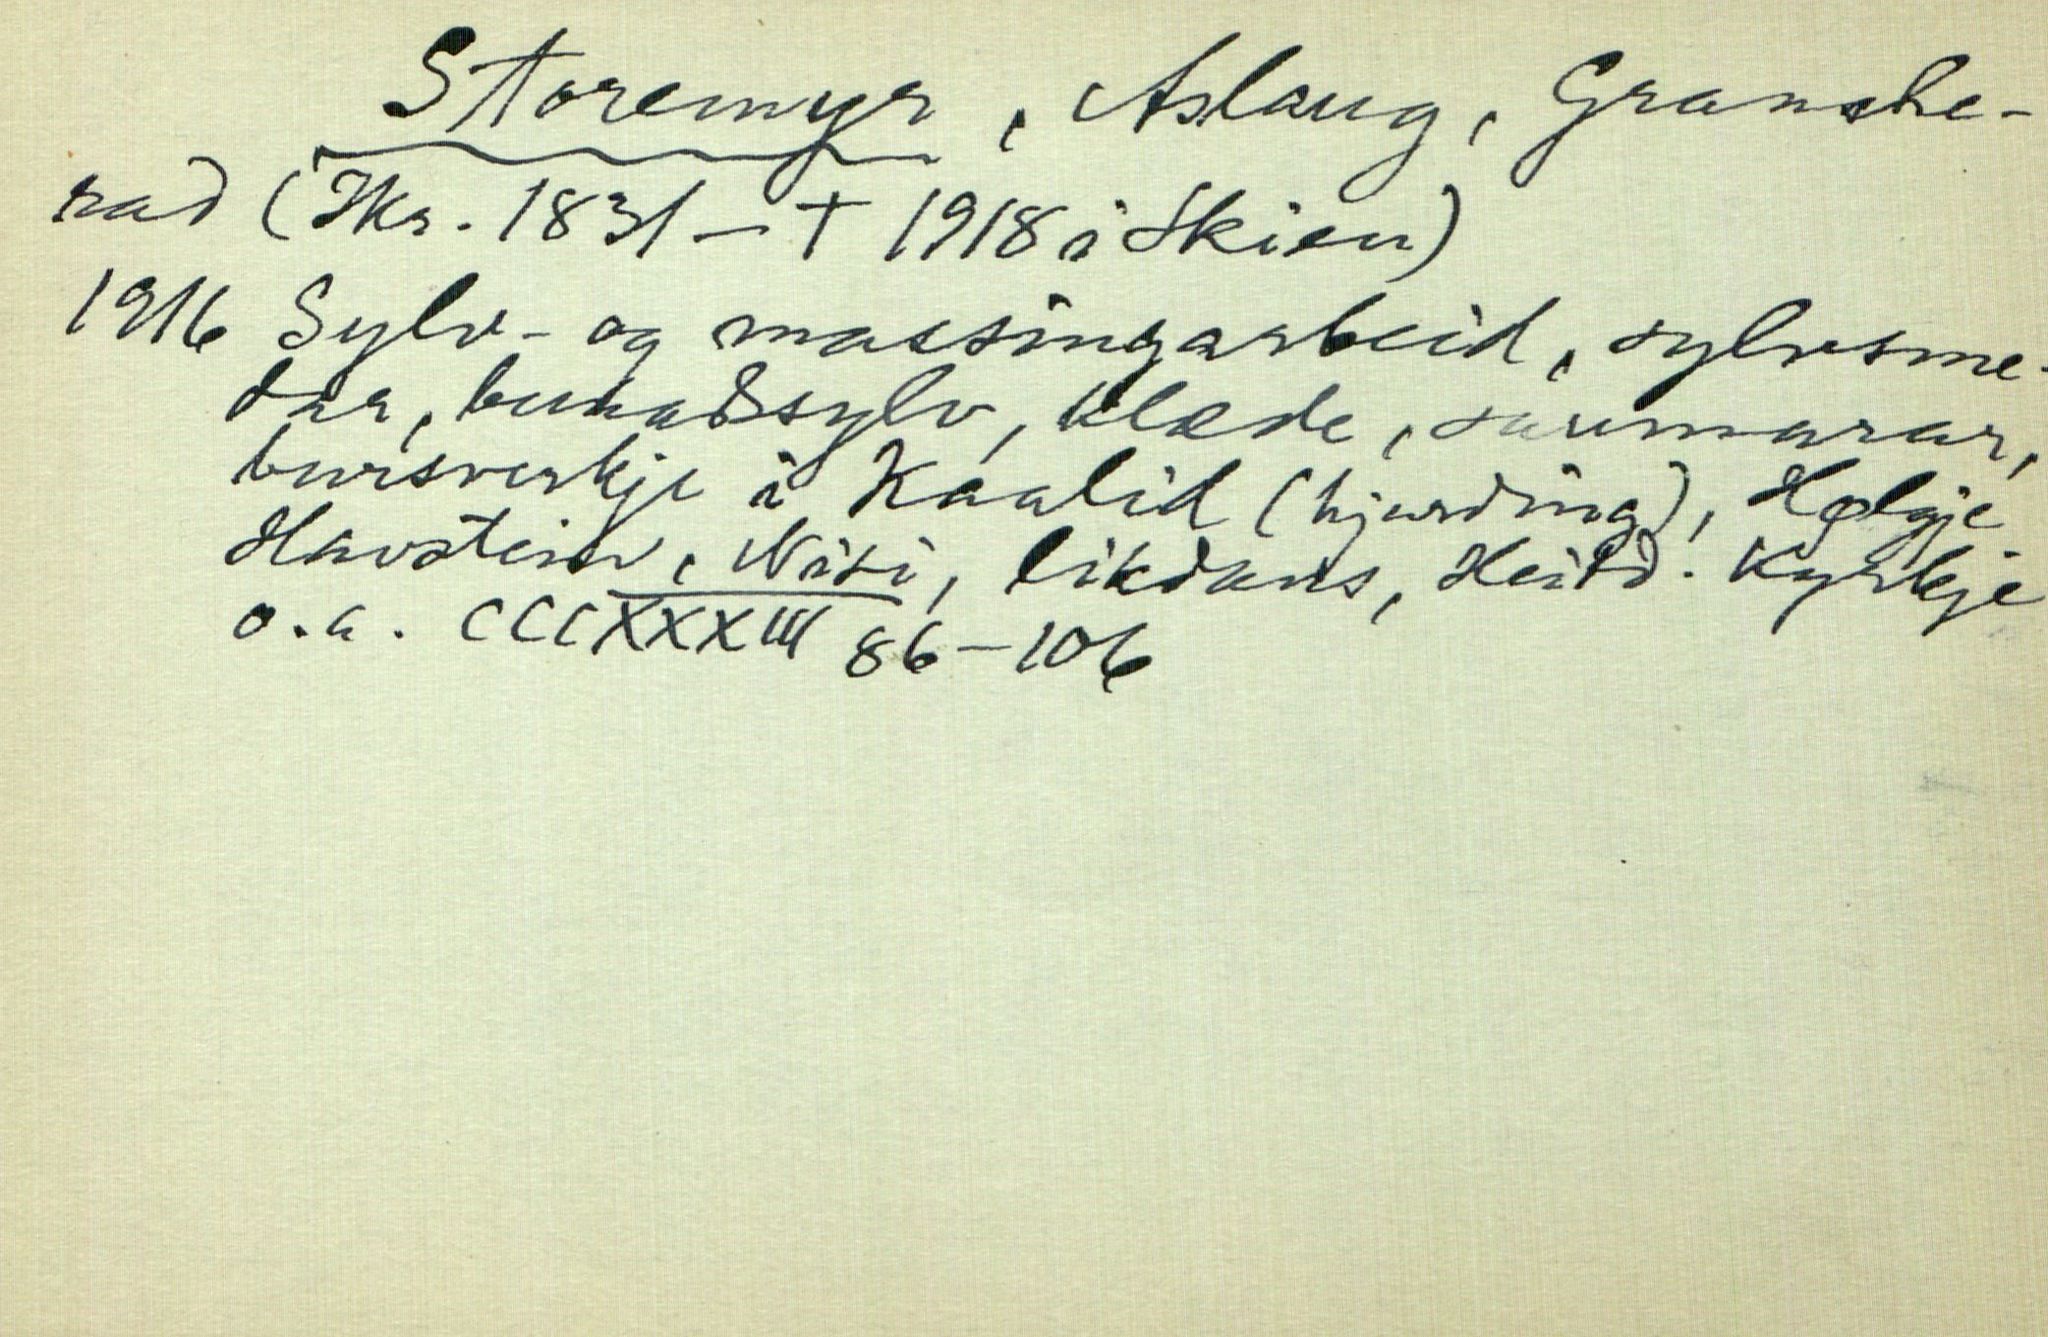 Storemyr, Aslaug, Granshe-
rad (Hkr. 1831 – † 1918 i Skien)
1916 Sylv- og massingarbeid, sylvsme-
dar, bunadsylv, klæde, saumarar,
bursverkje i Kaalid (hjurding), Helgje
Havstein, Nisi, likdans, Heidd. Kyrkje
o.a. CCCXXXIII 86–106